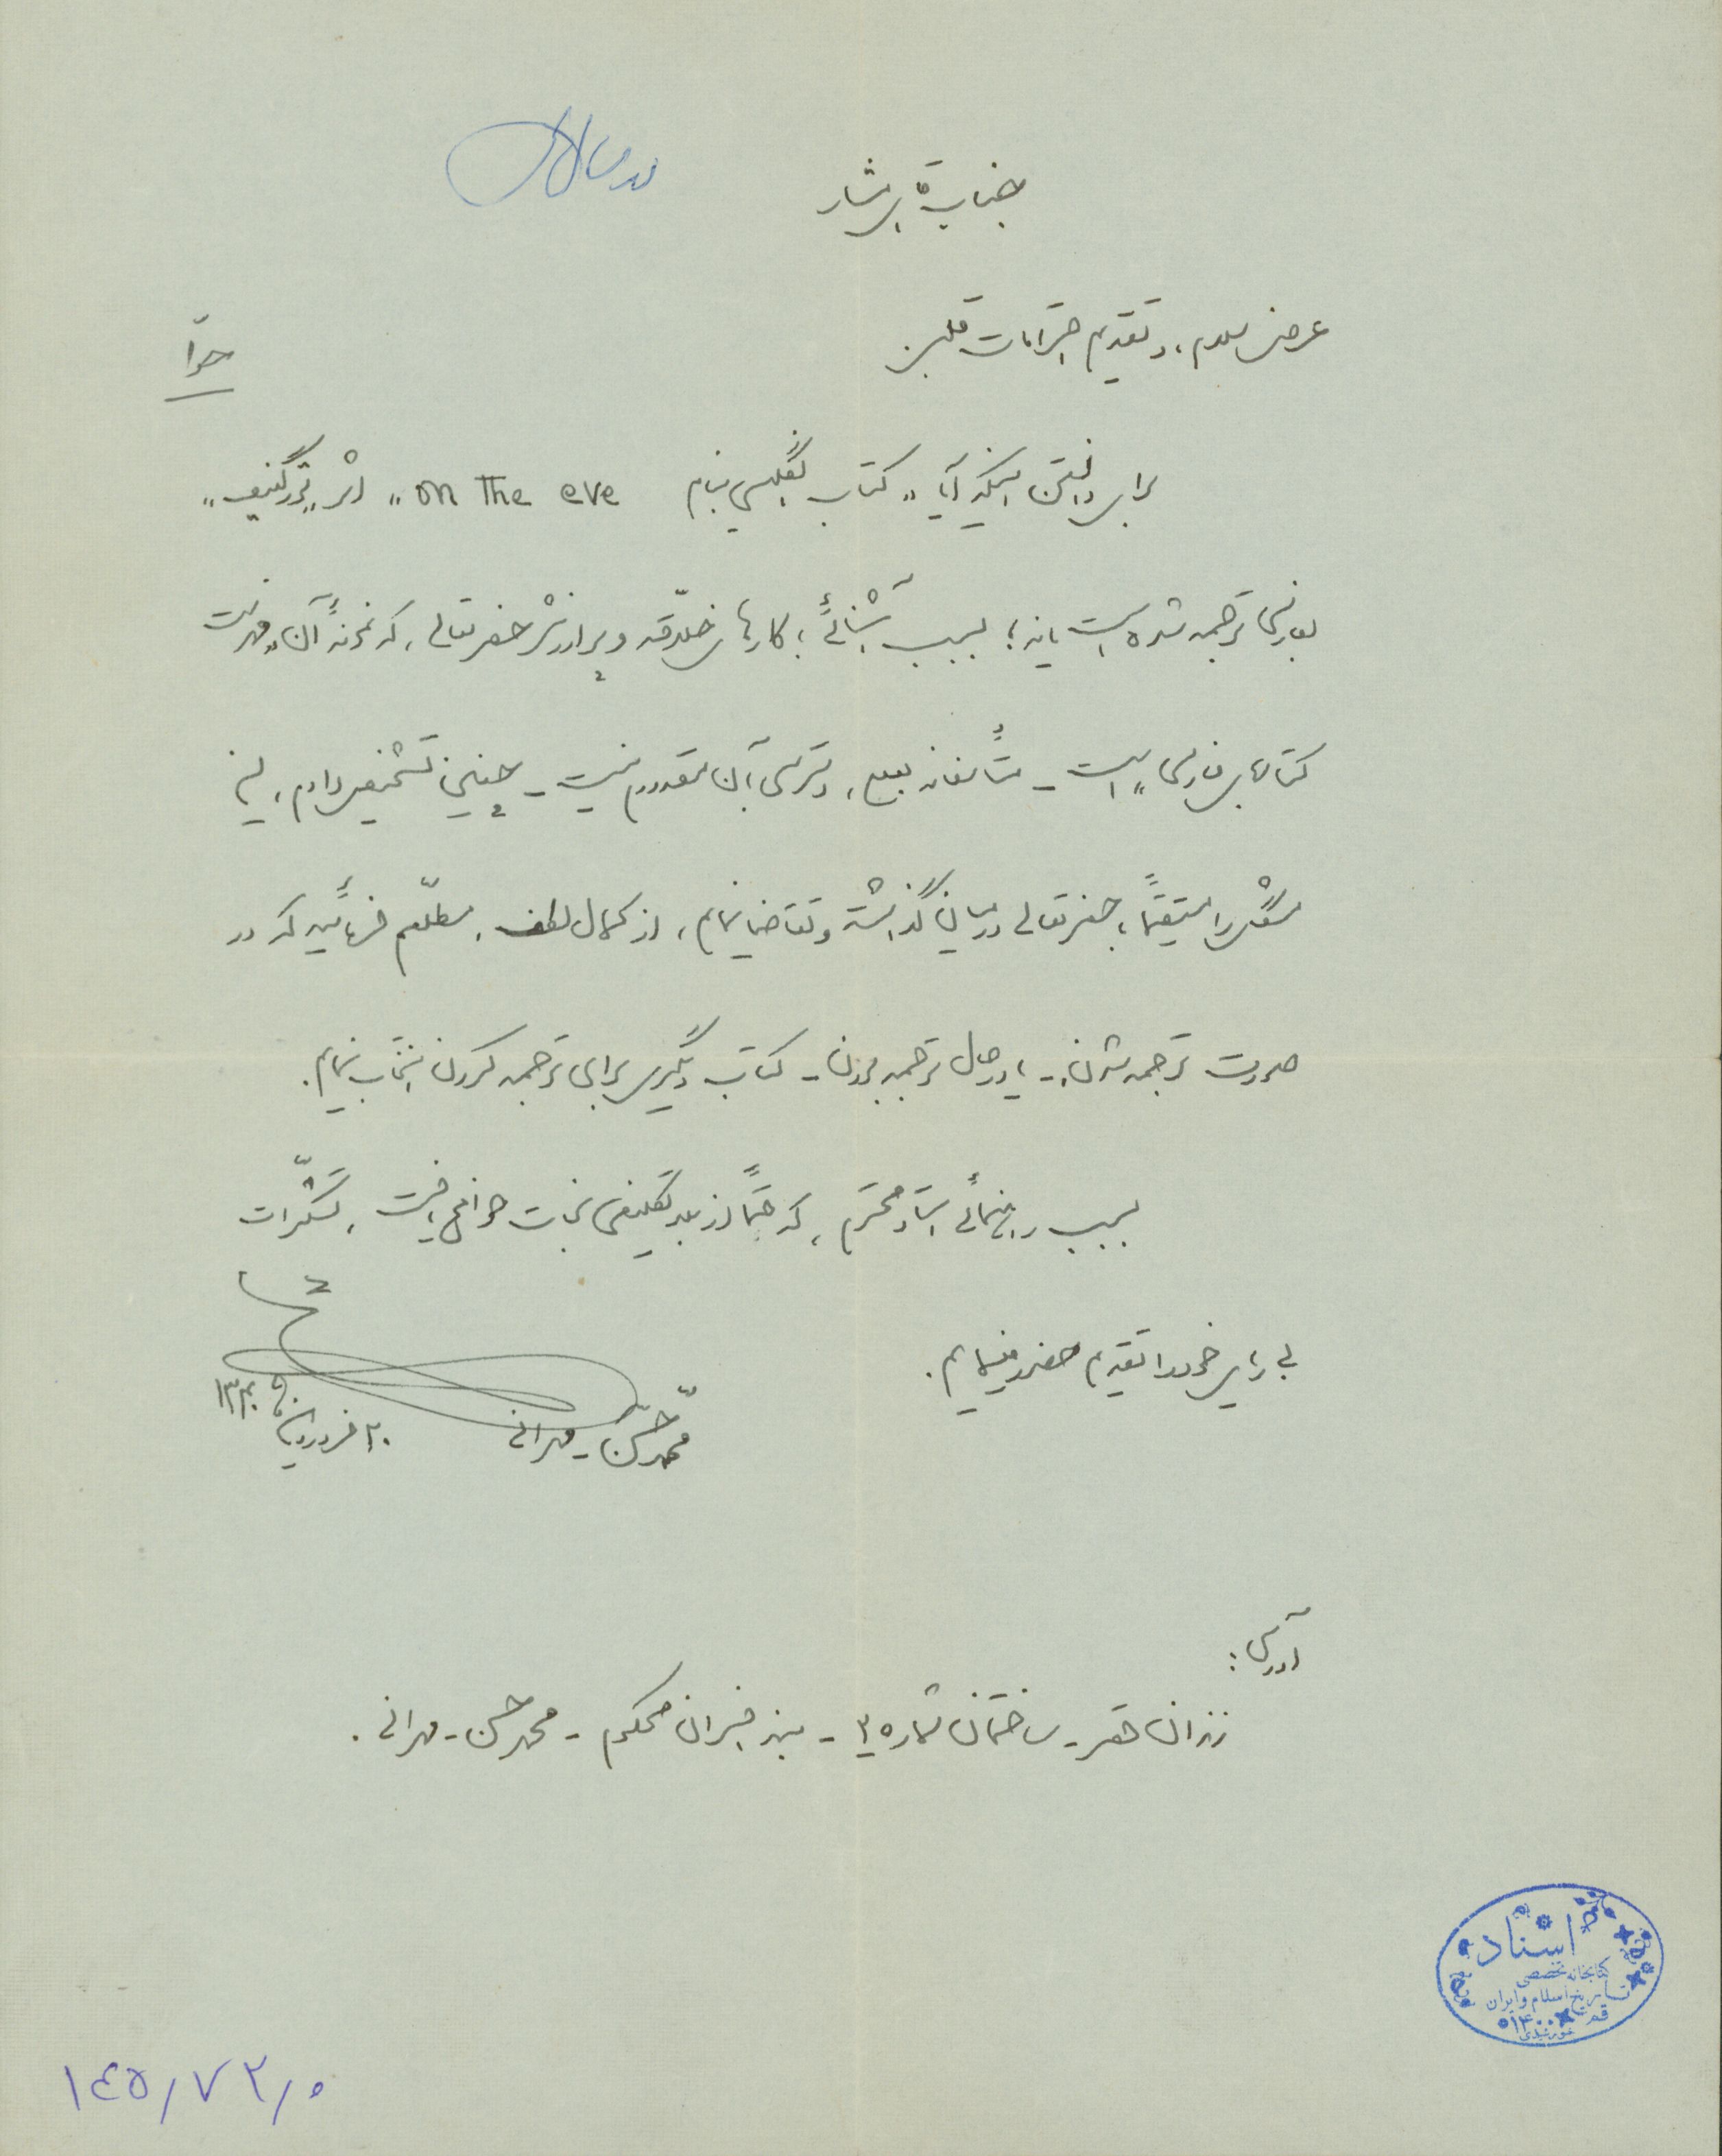 جناب آقای مشار
عرض سلام، و تقدیم احترامات قلبی
برای دانستن اینکه آیا " کتاب انگلیسی بنام on The eve " اثر "تورگنیف"
بفارسی ترجمه شده است یا نه؛ بسبب آشنائی با کارهای خلاقه و پرارزش حضرتعالی، که نمونهٔ آن "فهرست
کتابهای فارسی" است - متأسفانه بعلت، دسترسی بآن مقدورم نیست - چنین تشخیص دادم، این
مشکل را مستقیماً با حضرتعالی درمیان گذاشته و تقاضا نمایم، از کمال لطف، مطلعم فرمائید که در
صورت ترجمه شدن، - یا در حال ترجمه بودن - کتاب دیگری برای ترجمه کردن انتخاب نمایم.
بسبب راهنمائی استاد محترم، که حتماً از بلاتکلیفی نجات خواهم یافت، تشکرات
بی ریای خود را تقدیم حضور مینمایم.
محمد حسن - مهرانی
۲۰ فروردین
آدرس:
زندان قصر - ساختمان شماره ۳ - بند افسران محکوم - محمد حسن - مهرانی.
اسناد
کتابخانه تخصصی
تاریخ اسلام و ایران
قم
۱۴۵/۷۲/۰